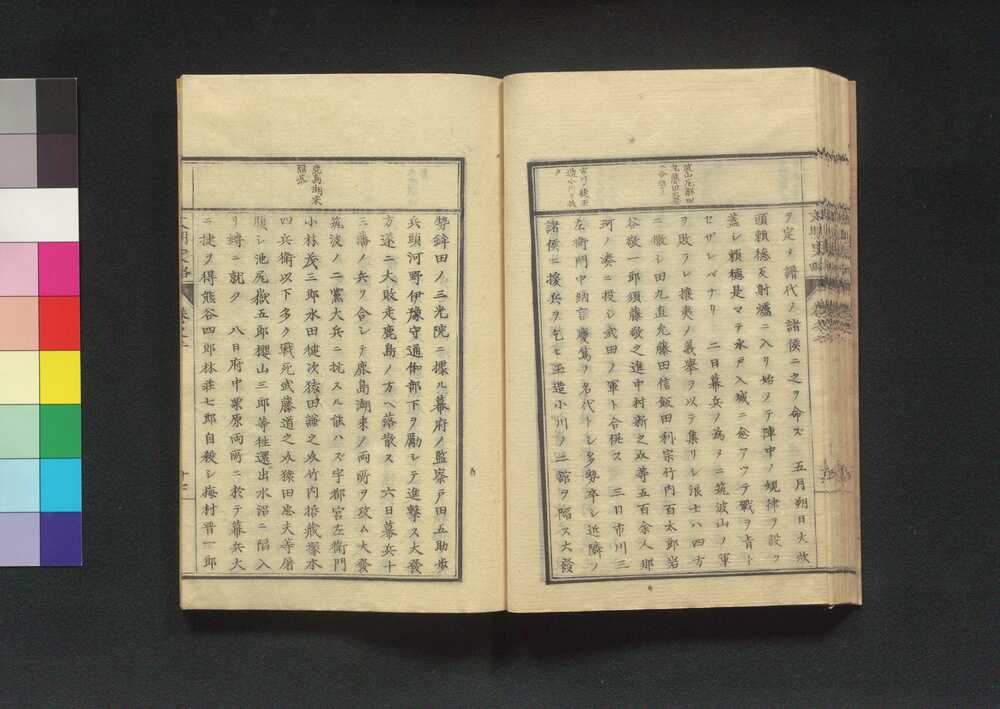 ヲ定メ譜代ノ諸侯ニ之ヲ命ズ　五月朔日大炊
頭頼徳反射爐ニ入リ始メテ陣中ノ規律ヲ設ク
蓋シ頼徳是マテ水戸入城ニ念アツテ戰ヲ肯ト
セザレバナリ　二日幕兵ノ為メニ筑波山ノ軍
ヲ敗ラレ攘夷ノ義擧ヲ以テ集リシ浪士ハ四方
ニ散シ田丸直允藤田信飯田利宗竹内百太郎岩
谷敬一郎須藤敬之進中村新之丞等五百余人那
珂ノ湊ニ投シ武田ノ軍ト合従ス　三日市川三
左衛門中納言慶篤ノ名代トシ多勢卒シ近隣ノ
諸侯ニ援兵ヲ乞ヒ玉造小川ノ二館ヲ陥ス大發
勢鉾田ノ三光院ニ據ル幕府ノ監察戸田五助歩
兵頭河野伊豫守通伽部下ヲ勵シテ進撃ス大發
方遂ニ大敗走鹿島ノ方ヘ落散ス　六日幕兵十
三藩ノ兵ヲ合シテ鹿島潮来ノ両所ヲ攻ム大發
筑波ノ二黨大兵ニ抗スル能ハズ宇都宮左衛門
小林茂三郎水田健次猿田謙之丞竹内哲蔵塚本
四兵衛以下多ク戰死或藤道之丞猿田忠夫等屠
腹シ池尻嶽五郎櫻山三郎等牲還出水沼ニ陥入
リ縛ニ就ク　八日府中栗原両所ニ於テ幕兵大
ニ捷ヲ得熊谷四郎林荘七郎自殺シ梅村晋一郎
鹿島潮来
文明史略